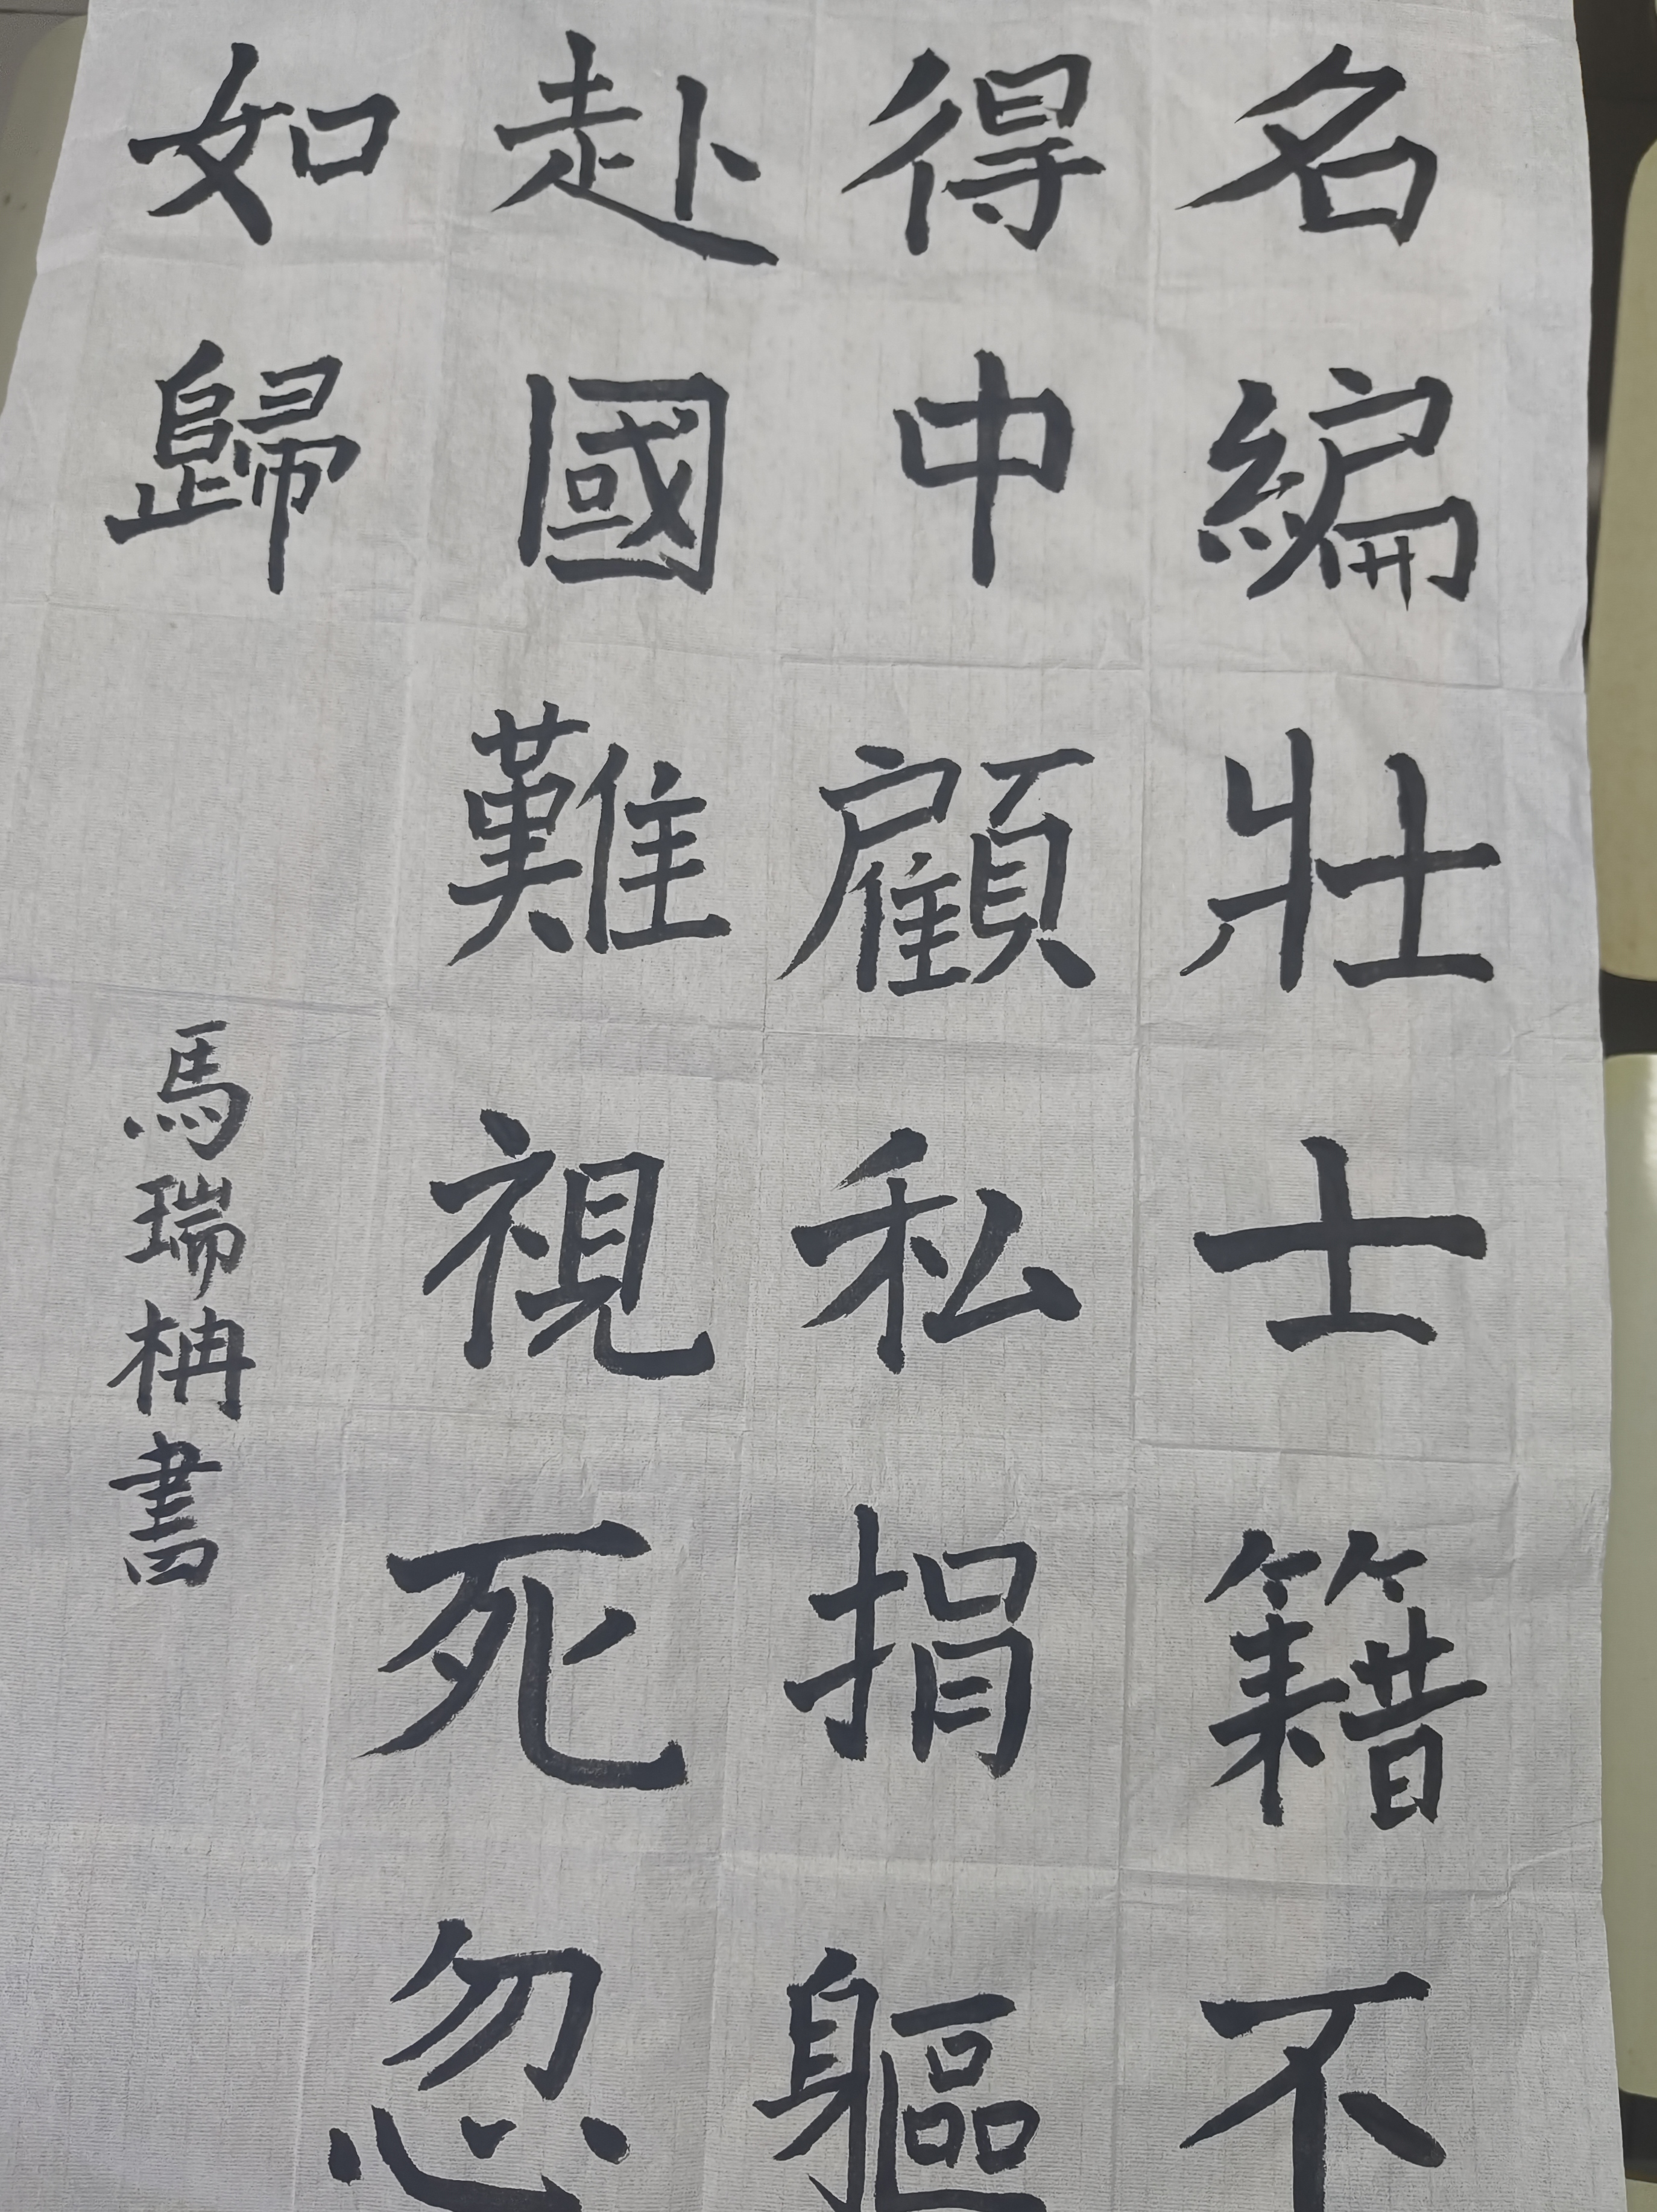 名編壯士籍不
得中顧私捐軀
赴國難視死忽
如歸
馬瑞枏書